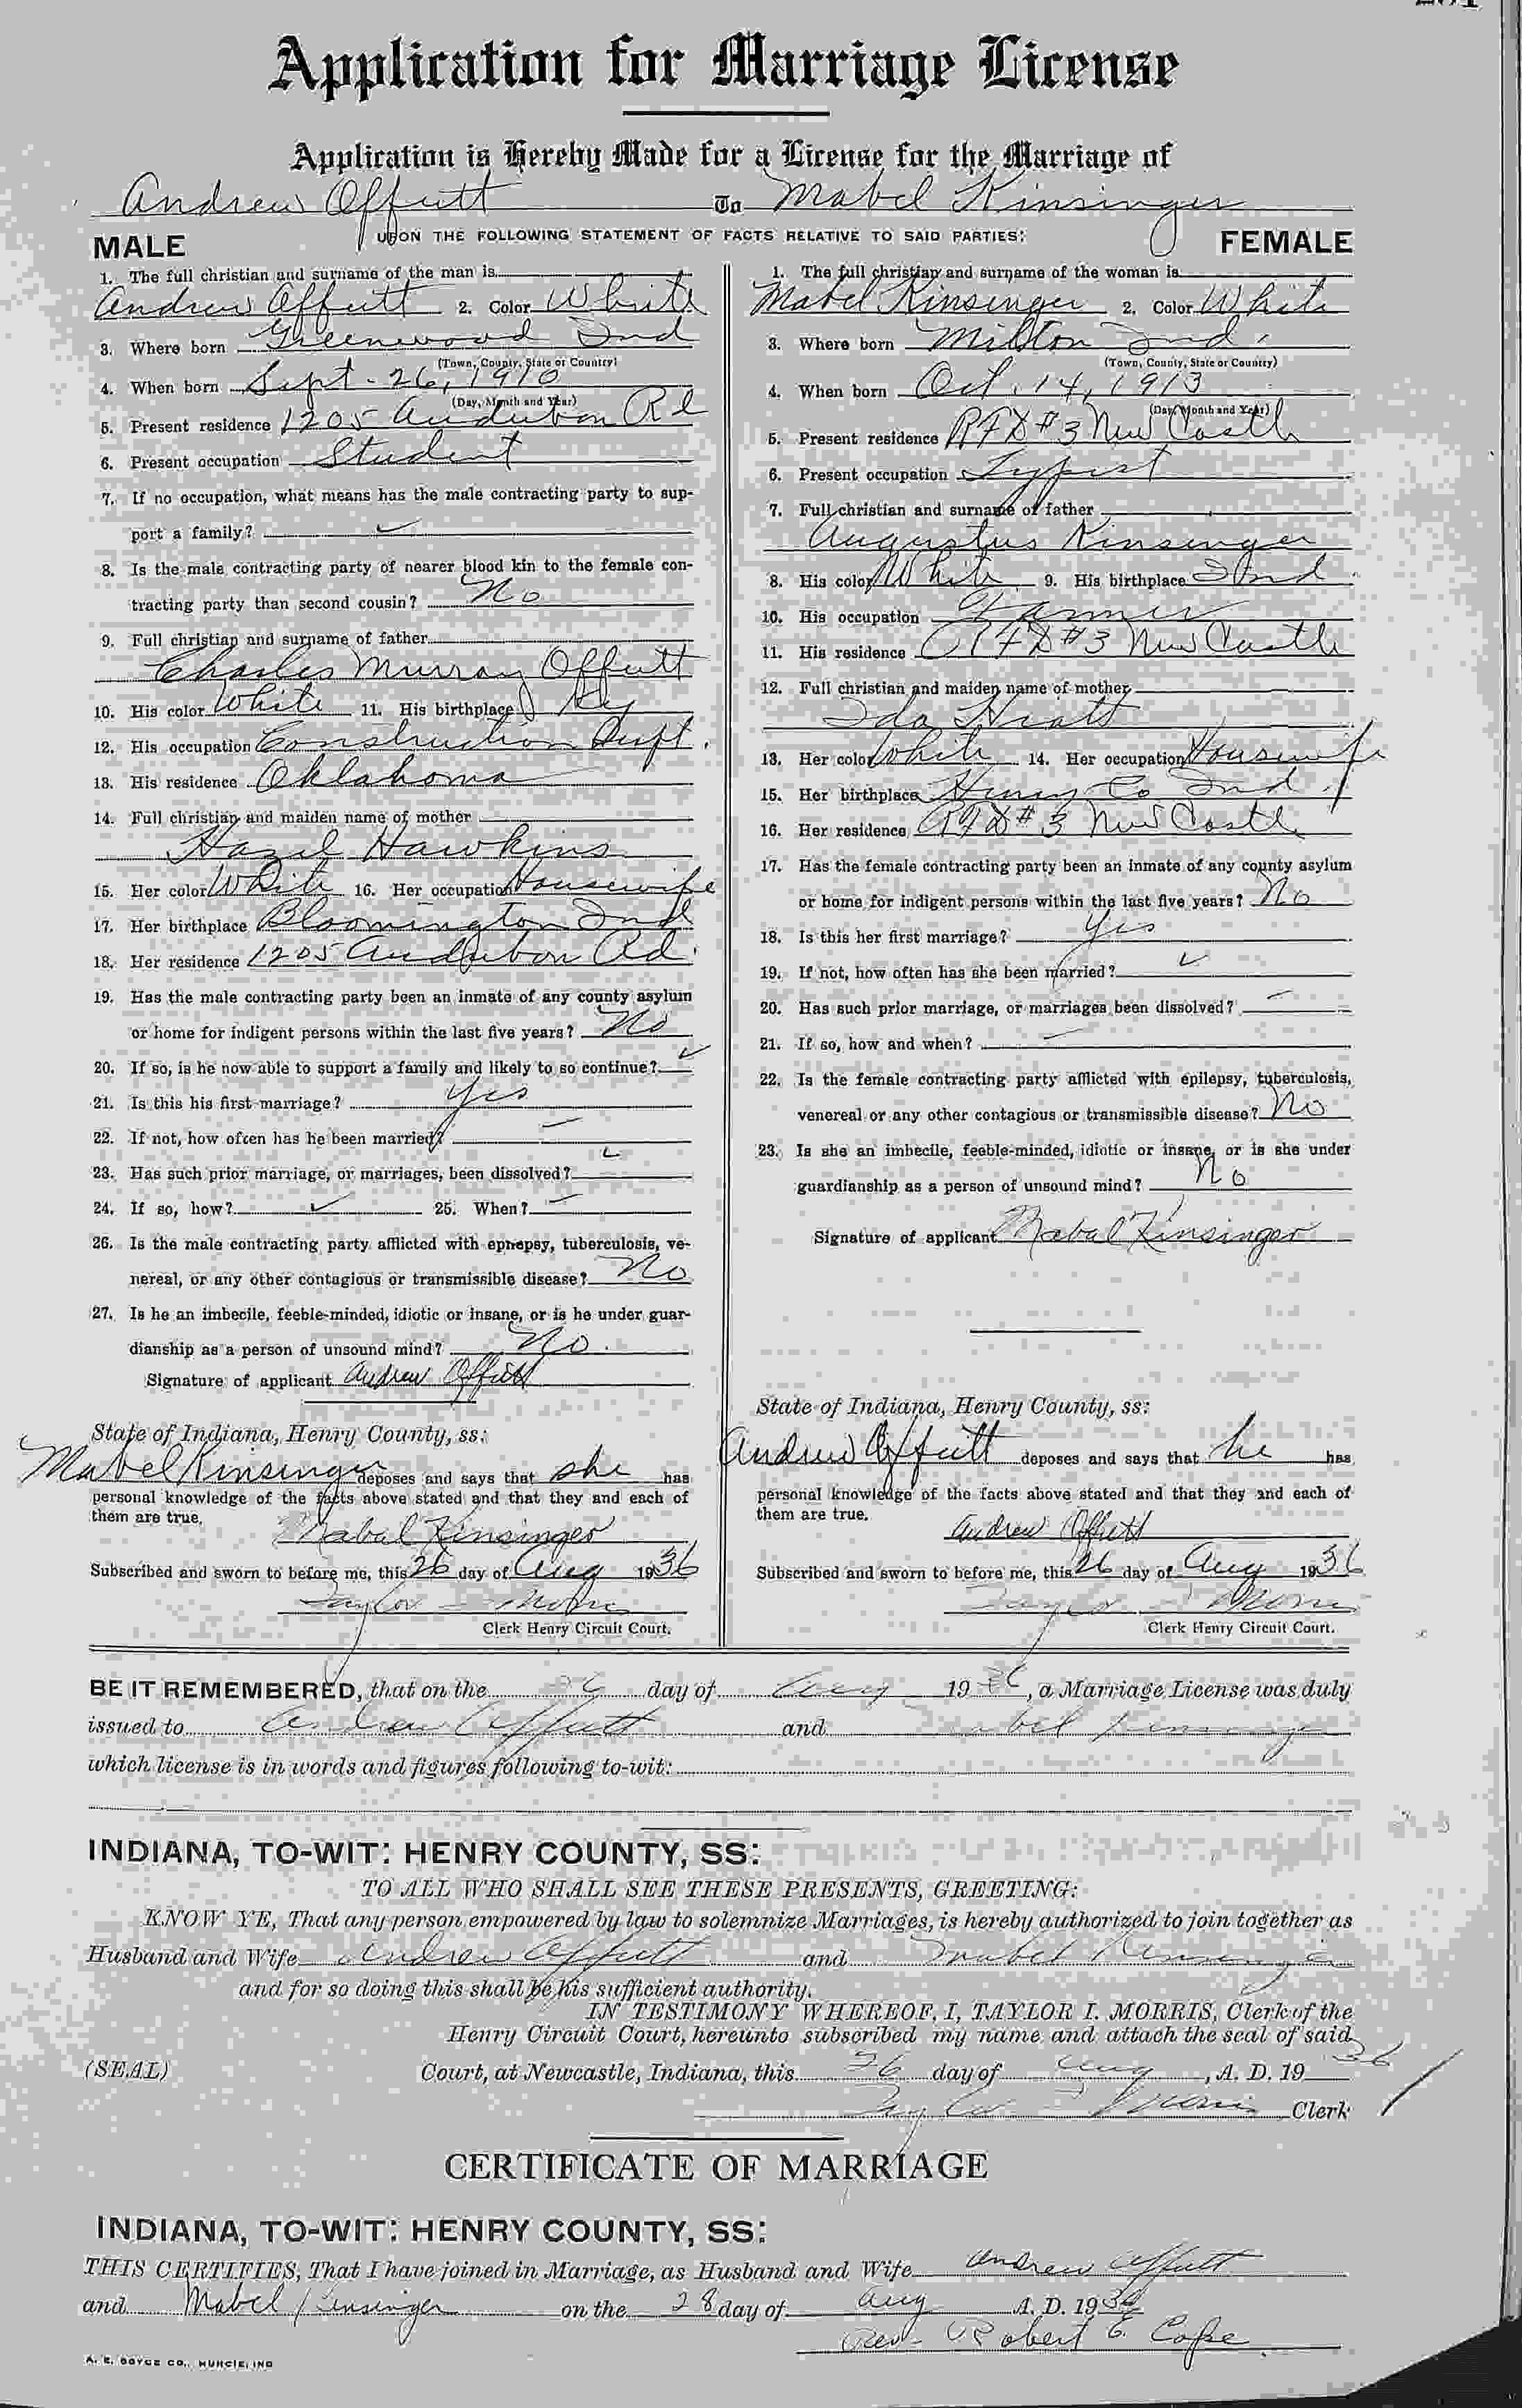 Application for Marriage License
Application is Hereby Made for a License for the Marriage of
Andrew Offutt To Mabel Kinsinger
UPON THE FOLLOWING STATEMENT OF FACTS RELATIVE TO SAID PARTIES:
MALE
1. The full christian and surname of the man is
Andrew Offutt 2. Color White
3. Where born Greenwood Ind
(Town, County, State or Country)
4. When born Sept. 26, 1910
(Day, Month and Year)
5. Present residence 1205 Audubon Rd
6. Present occupation Student
7. If no occupation, what means has the male contracting party to sup-
port a family?
8. Is the male contracting party of nearer blood kin to the female con-
tracting party than second cousin? No
9. Full christian and surname of father
Charles Murray Offutt
10. His color White 11. His birthplace Ky
12. His occupation Construction Supt.
13. His residence Oklahoma
14. Full christian and maiden name of mother
Hazel Hawkins
15. Her color White 16. Her occupation Housewife
17. Her birthplace Bloomington Ind
18. Her residence 1205 Audubon Rd.
19. Has the male contracting party been an inmate of any county asylum
or home for indigent persons within the last five years? No
20. If so, is he now able to support a family and likely to so continue?
21. Is this his first marriage? Yes
22. If not, how often has he been married?
23. Has such prior marriage, or marriages, been dissolved?
24. If so, how? 25. When?
26. Is the male contracting party afflicted with epilepsy, tuberculosis, ve-
nereal, or any other contagious or transmissible disease? No
27. Is he an imbecile, feeble-minded, idiotic or insane, or is he under guar-
dianship as a person of unsound mind? No.
Signature of applicant Andrew Offutt
State of Indiana, Henry County, ss:
Mabel Kinsinger deposes and says that she has
personal knowledge of the facts above stated and that they and each of
them are true.
Mabel Kinsinger
Subscribed and sworn to before me, this 26 day of Aug 1936
Taylor I Morris
Clerk Henry Circuit Court.
FEMALE
1. The full christian and surname of the woman is
Mabel Kinsinger 2. Color White
3. Where born Milton Ind.
(Town, County, State or Country)
4. When born Oct. 14, 1913
(Day, Month and Year)
5. Present residence RFD #3 New Castle
6. Present occupation Typist
7. Full christian and surname of father
Augustus Kinsinger
8. His color White 9. His birthplace Ind
10. His occupation Farmer
11. His residence RFD #3 New Castle
12. Full christian and maiden name of mother
Ida Hiatt
13. Her color White 14. Her occupation Housewife
15. Her birthplace Henry Co Ind
16. Her residence RFD #3 New Castle
17. Has the female contracting party been an inmate of any county asylum
or home for indigent persons within the last five years? No
18. Is this her first marriage? Yes
19. If not, how often has she been married?
20. Has such prior marriage, or marriages been dissolved?
21. If so, how and when?
22. Is the female contracting party afflicted with epilepsy, tuberculosis,
venereal or any other contagious or transmissible disease? No
23. Is she an imbecile, feeble-minded, idiotic or insane, or is she under
guardianship as a person of unsound mind? No
Signature of applicant Mabel Kinsinger
State of Indiana, Henry County, ss:
Andrew Offutt deposes and says that he has
personal knowledge of the facts above stated and that they and each of
them are true.
Andrew Offutt
Subscribed and sworn to before me, this 26 day of Aug 1936
Taylor I Morris
Clerk Henry Circuit Court.
BE IT REMEMBERED, that on the 26 day of Aug 1936, a Marriage License was duly
issued to Andrew Offutt and Mabel Kinsinger
which license is in words and figures following to-wit:
INDIANA, TO-WIT: HENRY COUNTY, SS:
TO ALL WHO SHALL SEE THESE PRESENTS, GREETING:
KNOW YE, That any person empowered by law to solemnize Marriages, is hereby authorized to join together as
Husband and Wife Andrew Offutt and Mabel Kinsinger
and for so doing this shall be his sufficient authority.
IN TESTIMONY WHEREOF, I, TAYLOR I. MORRIS, Clerk of the
Henry Circuit Court, hereunto subscribed my name and attach the seal of said
(SEAL) Court, at Newcastle, Indiana, this 26 day of Aug, A. D. 1936
Taylor I Morris Clerk
CERTIFICATE OF MARRIAGE
INDIANA, TO-WIT: HENRY COUNTY, SS:
THIS CERTIFIES, That I have joined in Marriage, as Husband and Wife Andrew Offutt
and Mabel Kinsinger on the 28 day of Aug A. D. 1936
Rev. Robert E. Cope
A. E. BOYCE CO., MUNCIE, IND